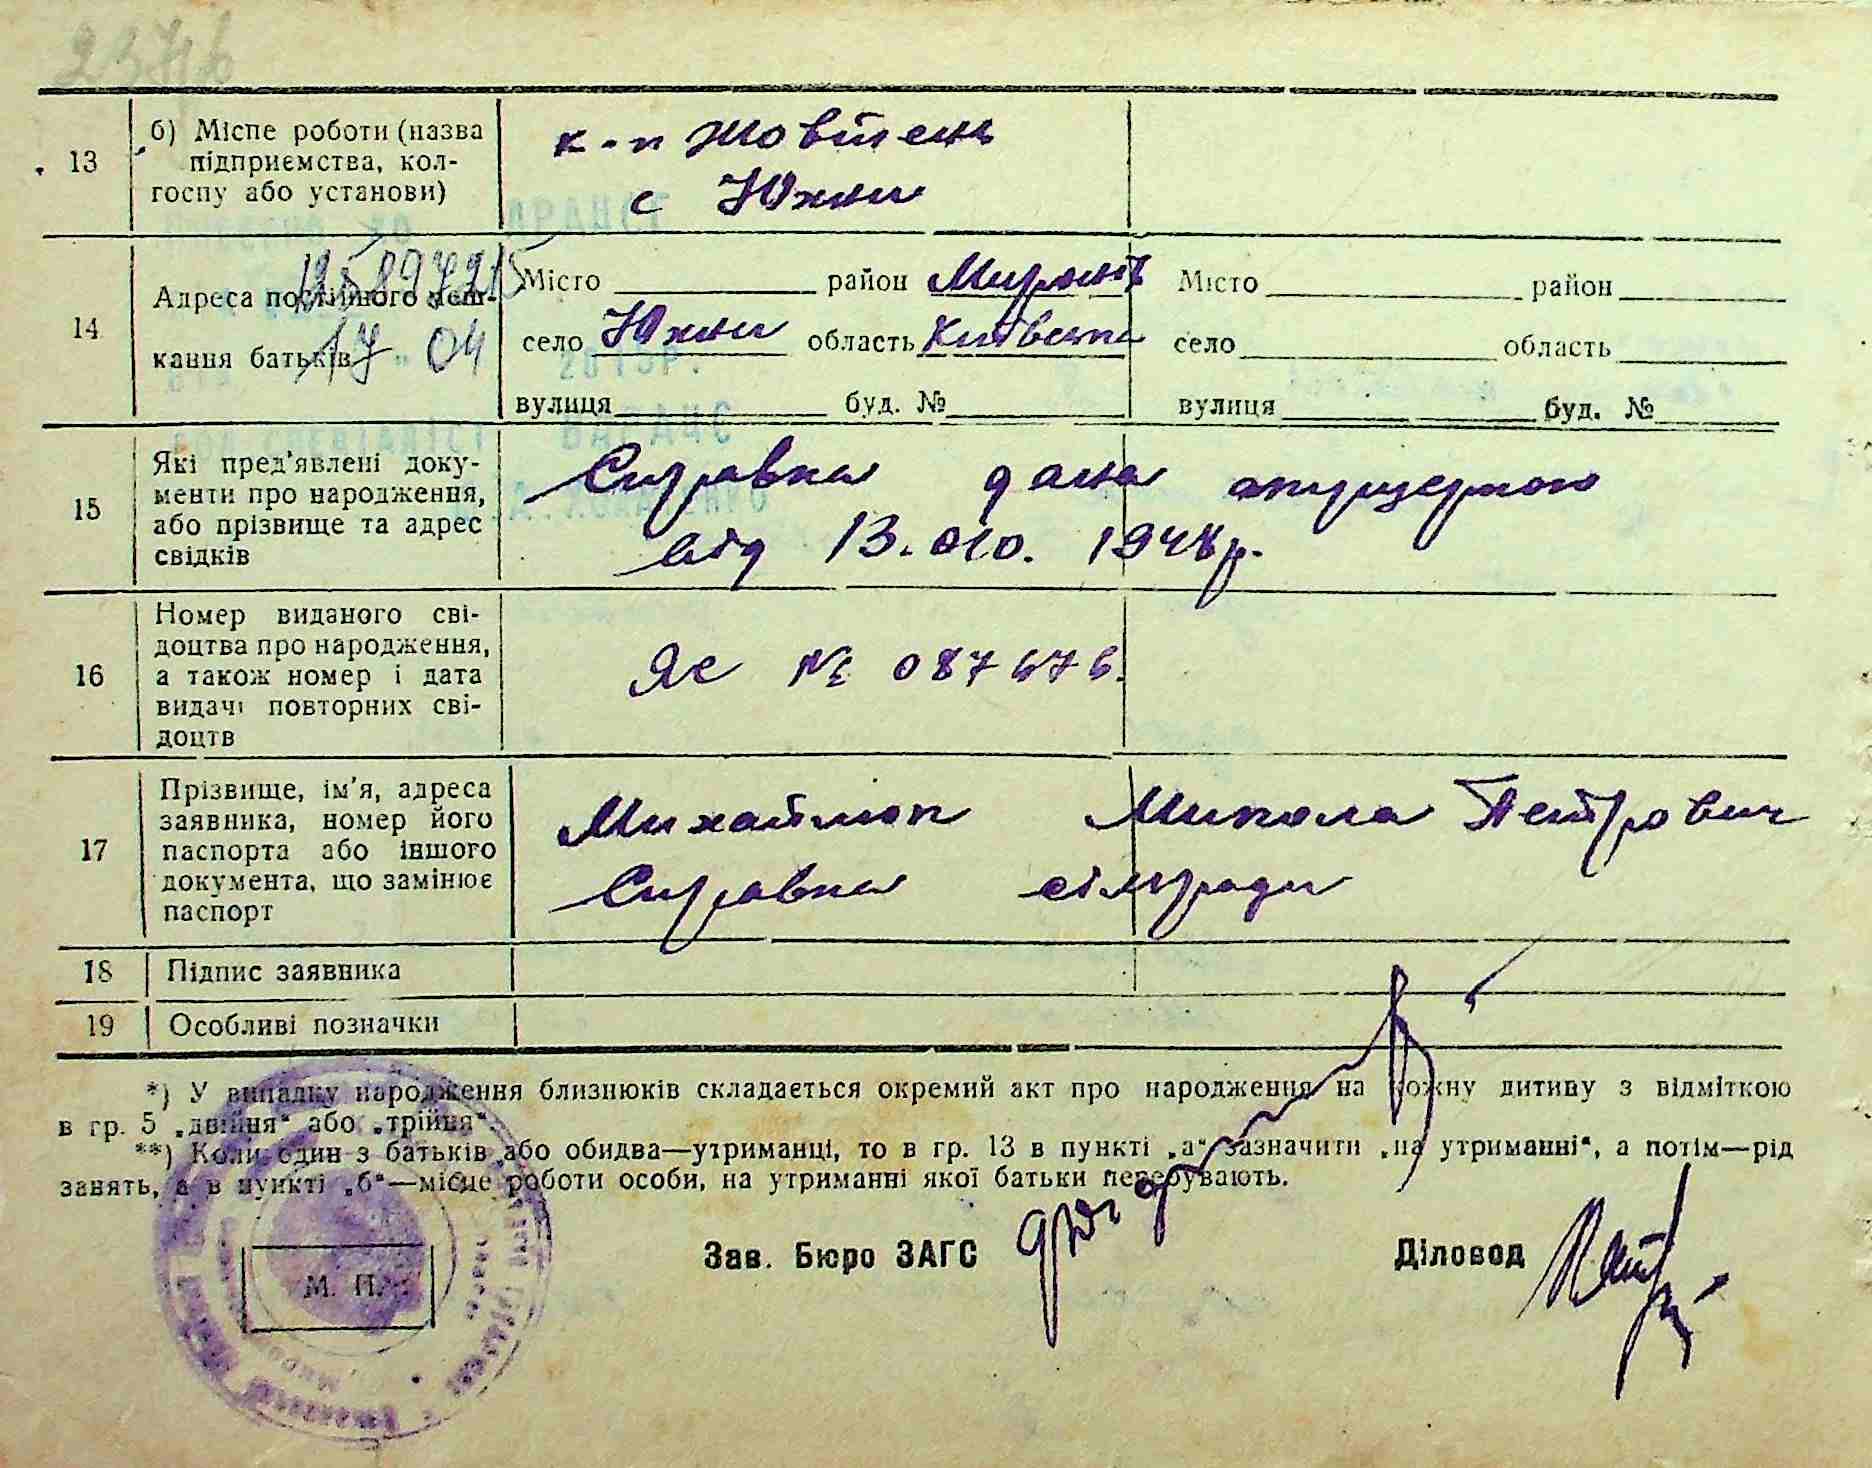 13
б) Місце роботи (назва
підприємства, кол-
госпу або установи)
к-п Жовтень
с Юхни
14
Адреса постійного меш-
кання батьків
17 04
Місто район Миронів
село Юхни область Київська
вулиця буд. №
Місто район
село область
вулиця буд. №
15
Які пред'явлені доку-
менти про народження,
або прізвище та адрес
свідків
Справка дана акушеркою
від 1948р.
16
Номер виданого сві-
доцтва про народження,
а також номер і дата
видачі повторних сві-
доцтв
ЯЄ № 087676
17
Прізвище, ім'я, адреса
заявника, номер його
паспорта або іншого
документа, що замінює
паспорт
Михайлюк Микола Петрович
Справка сільради
18
Підпис заявника
19
Особливі позначки
*) У випадку народження близнюків складається окремий акт про народження на кожну дитину з відміткою
в гр. 5 „двійня“ або „трійня“.
**) Коли один з батьків або обидва—утриманці, то в гр. 13 в пункті „а“ зазначити „на утриманні“, а потім—рід
занять, а в пункті „б“—місце роботи особи, на утриманні якої батьки перебувають.
Зав. Бюро ЗАГС
Діловод
М. П.